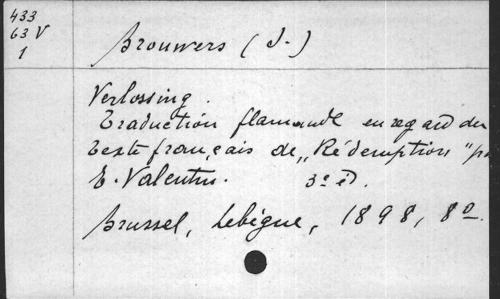 433
63 V
1
Brouwers (J.)
Verlossing.
Traduction flamande en regard du
texte français de „Rédemption" pa
E. Valentin. 3e éd.
Brussel, Lebègue, 1898, 8o.